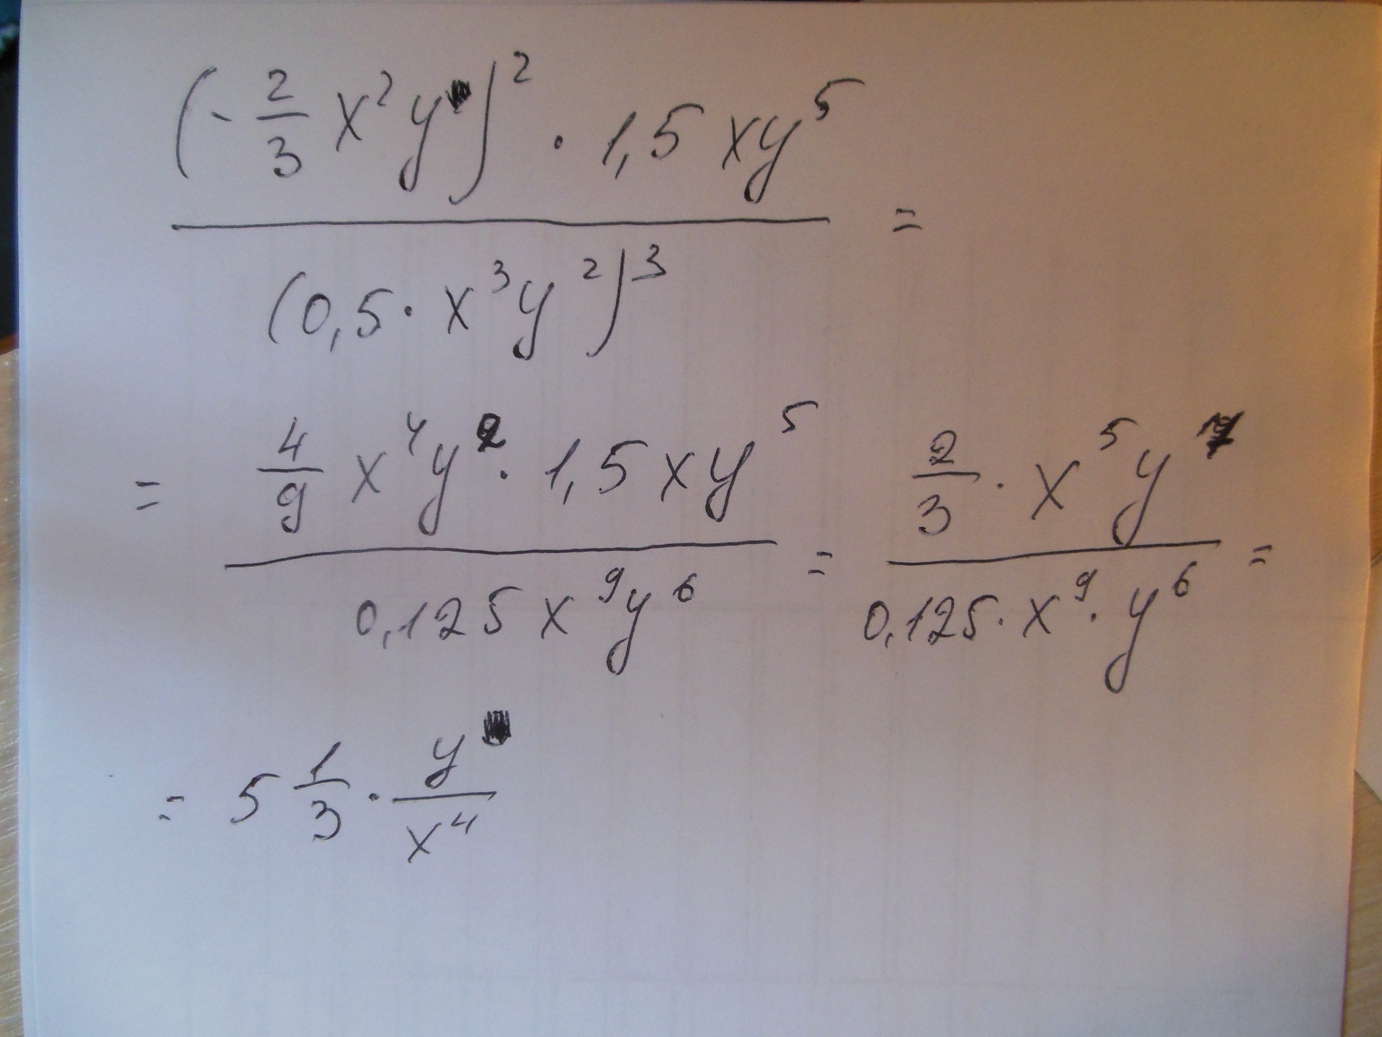 (-2/3 x²y)² · 1,5 xy⁵ / (0,5 · x³y²)³ =
= 4/9 x⁴y² · 1,5 xy⁵ / 0,125 x⁹y⁶ = 2/3 · x⁵y⁷ / 0,125 · x⁹ · y⁶ =
= 5 1/3 · y/x⁴